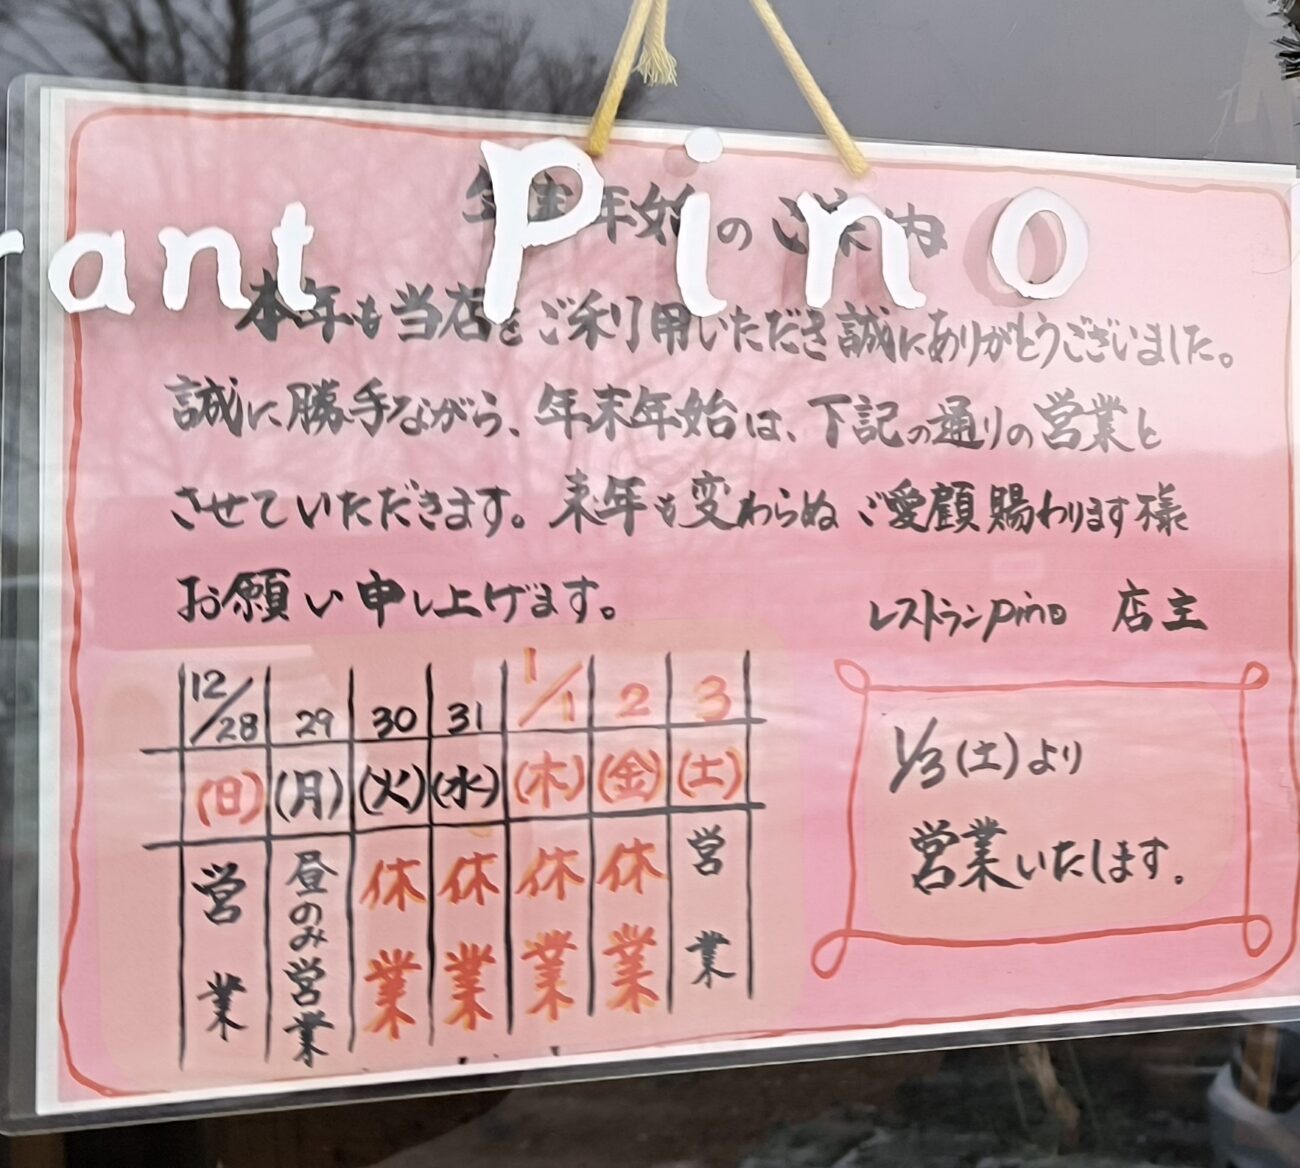 rant Pino
年末年始のご案内
本年も当店をご利用いただき誠にありがとうございました。
誠に勝手ながら、年末年始は、下記の通りの営業と
させていただきます。来年も変わらぬご愛顧賜わります様
お願い申し上げます。
レストランpino 店主
12/28 29 30 31 1/1 2 3
(日) (月) (火) (水) (木) (金) (土)
営業 昼のみ営業 休業 休業 休業 休業 営業
1/3(土)より
営業いたします。